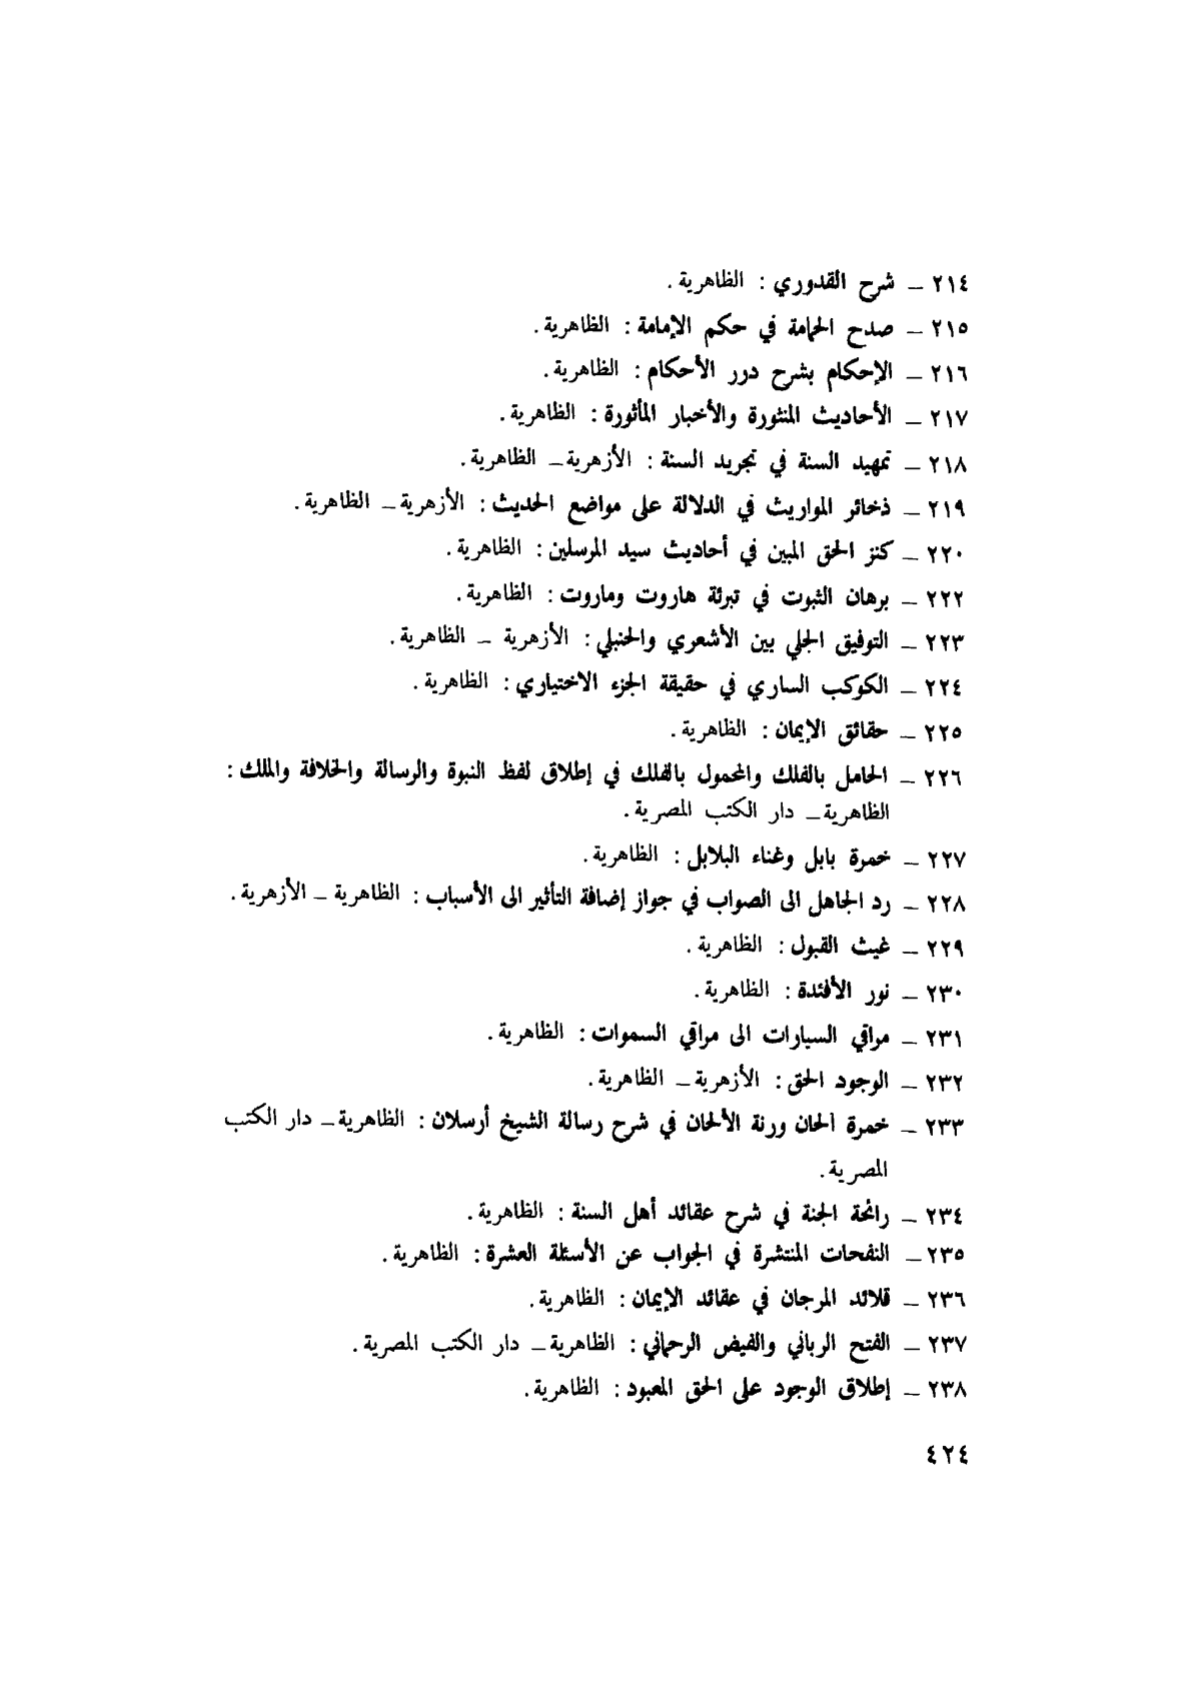 ٢١٤ – شرح القدوري : الظاهرية .
٢١٥ – صدح الحمامة في حكم الإمامة : الظاهرية .
٢١٦ – الإحكام بشرح درر الأحكام : الظاهرية .
٢١٧ – الأحاديث المنثورة والأخبار المأثورة : الظاهرية .
٢١٨ – تمهيد السنة في تجريد السنة : الأزهرية – الظاهرية .
٢١٩ – ذخائر المواريث في الدلالة على مواضع الحديث : الأزهرية – الظاهرية .
٢٢٠ – كنز الحق المبين في أحاديث سيد المرسلين : الظاهرية .
٢٢٢ – برهان الثبوت في تبرئة هاروت وماروت : الظاهرية .
٢٢٣ – التوفيق الجلي بين الأشعري والحنبلي : الأزهرية – الظاهرية .
٢٢٤ – الكوكب الساري في حقيقة الجزء الاختياري : الظاهرية .
٢٢٥ – حقائق الإيمان : الظاهرية .
٢٢٦ – الحامل بالفلك والمحمول بالفلك في إطلاق لفظ النبوة والرسالة والخلافة والملك :
الظاهرية – دار الكتب المصرية .
٢٢٧ – خمرة بابل وغناء البلابل : الظاهرية .
٢٢٨ – رد الجاهل الى الصواب في جواز إضافة التأثير الى الأسباب : الظاهرية – الأزهرية .
٢٢٩ – غيث القبول : الظاهرية .
٢٣٠ – نور الأفئدة : الظاهرية .
٢٣١ – مراقي السيارات الى مراقي السموات : الظاهرية .
٢٣٢ – الوجود الحق : الأزهرية – الظاهرية .
٢٣٣ – خمرة الحان ورنة الألحان في شرح رسالة الشيخ أرسلان : الظاهرية – دار الكتب
المصرية .
٢٣٤ – رائحة الجنة في شرح عقائد أهل السنة : الظاهرية .
٢٣٥ – النفحات المنتشرة في الجواب عن الأسئلة العشرة : الظاهرية .
٢٣٦ – قلائد المرجان في عقائد الإيمان : الظاهرية .
٢٣٧ – الفتح الرباني والفيض الرحماني : الظاهرية – دار الكتب المصرية .
٢٣٨ – إطلاق الوجود على الحق المعبود : الظاهرية .
٤٢٤